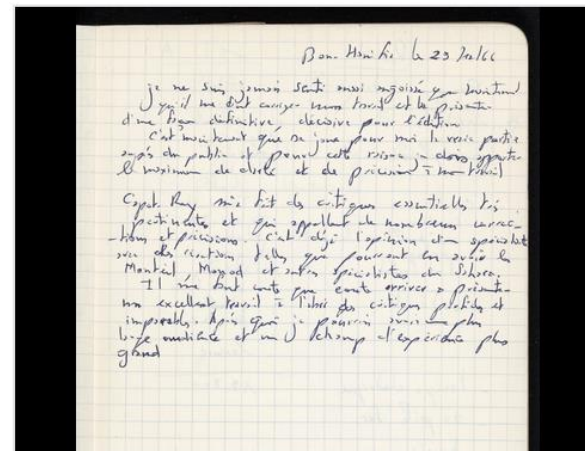 je ne suis jamais senti aussi angoissé que maintenant
qu'il me faut corriger mon travail et le présenter
d'une façon définitive, décisive pour l'édition
C'est maintenant que se joue pour moi la vraie partie
auprès du public et pour cette raison je dois apporter
le maximum de clarté et de précision à mon travail
m'a fait des critiques essentielles très
pertinentes et qui appellent de nombreuses correc-
-tions et précisions. C'est déjà l'opinion d'un spécialiste
avec des réactions telles que pourront en avoir les
Monteil, Monod et autres spécialistes du Sahara.
Il me faut coûte que coûte arriver à présenter
un excellent travail à l'abri des critiques
Après quoi je pourrai avoir un plus
large audience et un champ d'expérience plus
grand